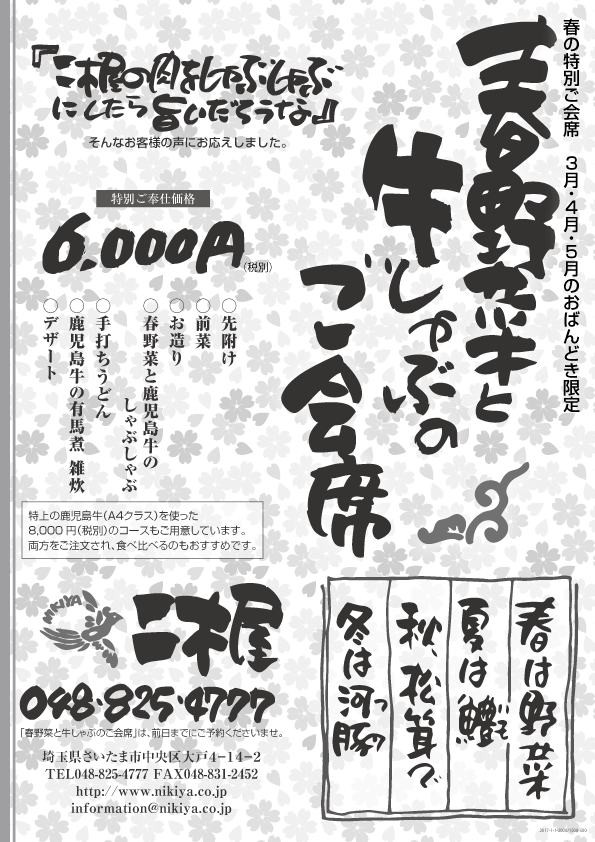 春の特別ご会席 3月・4月・5月のおばんどき限定
春野菜と
牛しゃぶの
ご会席
『二木屋の肉をしゃぶしゃぶ
にしたら旨いだろうな』
そんなお客様の声にお応えしました。
特別ご奉仕価格
6,000円(税別)
○先附け
○前菜
○お造り
○春野菜と鹿児島牛の
しゃぶしゃぶ
○手打ちうどん
○鹿児島牛の有馬煮 雑炊
○デザート
特上の鹿児島牛(A4クラス)を使った
8,000円(税別)のコースもご用意しています。
両方をご注文され、食べ比べるのもおすすめです。
NIKIYA
二木屋
048・825・4777
「春野菜と牛しゃぶのご会席」は、前日までにご予約くださいませ。
埼玉県さいたま市中央区大戸4-14-2
TEL048-825-4777 FAX048-831-2452
http://www.nikiya.co.jp
information@nikiya.co.jp
春は野菜
夏は鱧
秋、松茸で
冬は河豚